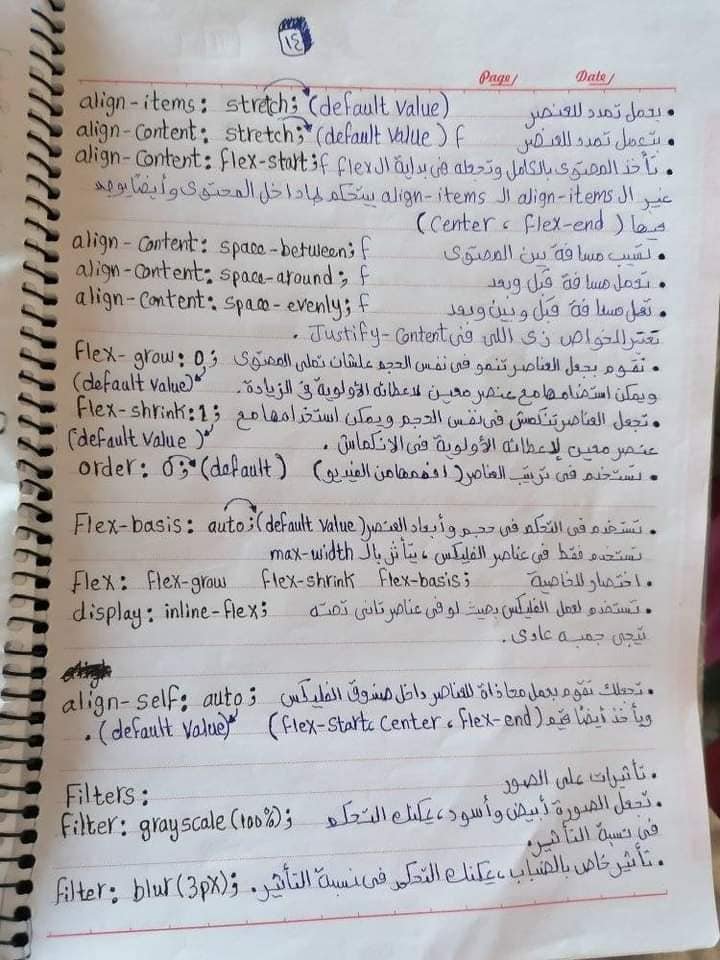 ١٤
Page/ Date/
align-items: stretch; (default value) • يعمل تمدد للعنصر
align-content: stretch; (default value) f بتعمل تمدد للعنصر
align-content: flex-start; f • تأخذ المحتوى بالكامل وتحطه في بداية الـ flex
غير الـ align-items الـ align-items بيتحكم لما داخل المحتوى وأيضًا يوجد
فيها (center، flex-end)
align-content: space-between; f • تسيب مسافة بين المحتوى
align-content: space-around; f • تعمل مسافة قبل وبعد
align-content: space-evenly; f • تعمل مسافة قبل وبين وبعد
تعتبر الخواص زى اللى فى Justify-content.
flex-grow: 0; • تقوم بجعل العناصر تنمو فى نفس الحجم علشان تملى المحتوى
(default value) ويمكن استخدامها مع عنصر معين لاعطائه الأولوية في الزيادة.
flex-shrink: 1; • تجعل العناصر تنكمش فى نفس الحجم ويمكن استخدامها مع
(default value) عنصر معين لإعطائه الأولوية فى الانكماش.
order: 0; (default) • تستخدم فى ترتيب العناصر (افهمها من الفيديو)
Flex-basis: auto; (default value) • تستخدم فى التحكم فى حجم وأبعاد العنصر
تستخدم فقط فى عناصر الفليكس، يتأثر بالـ max-width
Flex: flex-grow flex-shrink flex-basis; • اختصار للخاصية
display: inline-flex; • تستخدم لعمل الفليكس بحيث لو فى عناصر تانى تحته
تيجى جمبه عادى.
align-self: auto; • تجعلك تقوم بعمل محاذاة للعناصر داخل صندوق الفليكس
(default value). ويأخذ أيضًا قيم (flex-start، center، flex-end)
Filters: • تأثيرات على الصور
filter: grayscale(100%); • تجعل الصورة أبيض وأسود، يمكنك التحكم
فى نسبة التأثير.
filter: blur(3px); • تأثير خاص بالضباب، يمكنك التحكم فى نسبة التأثير.